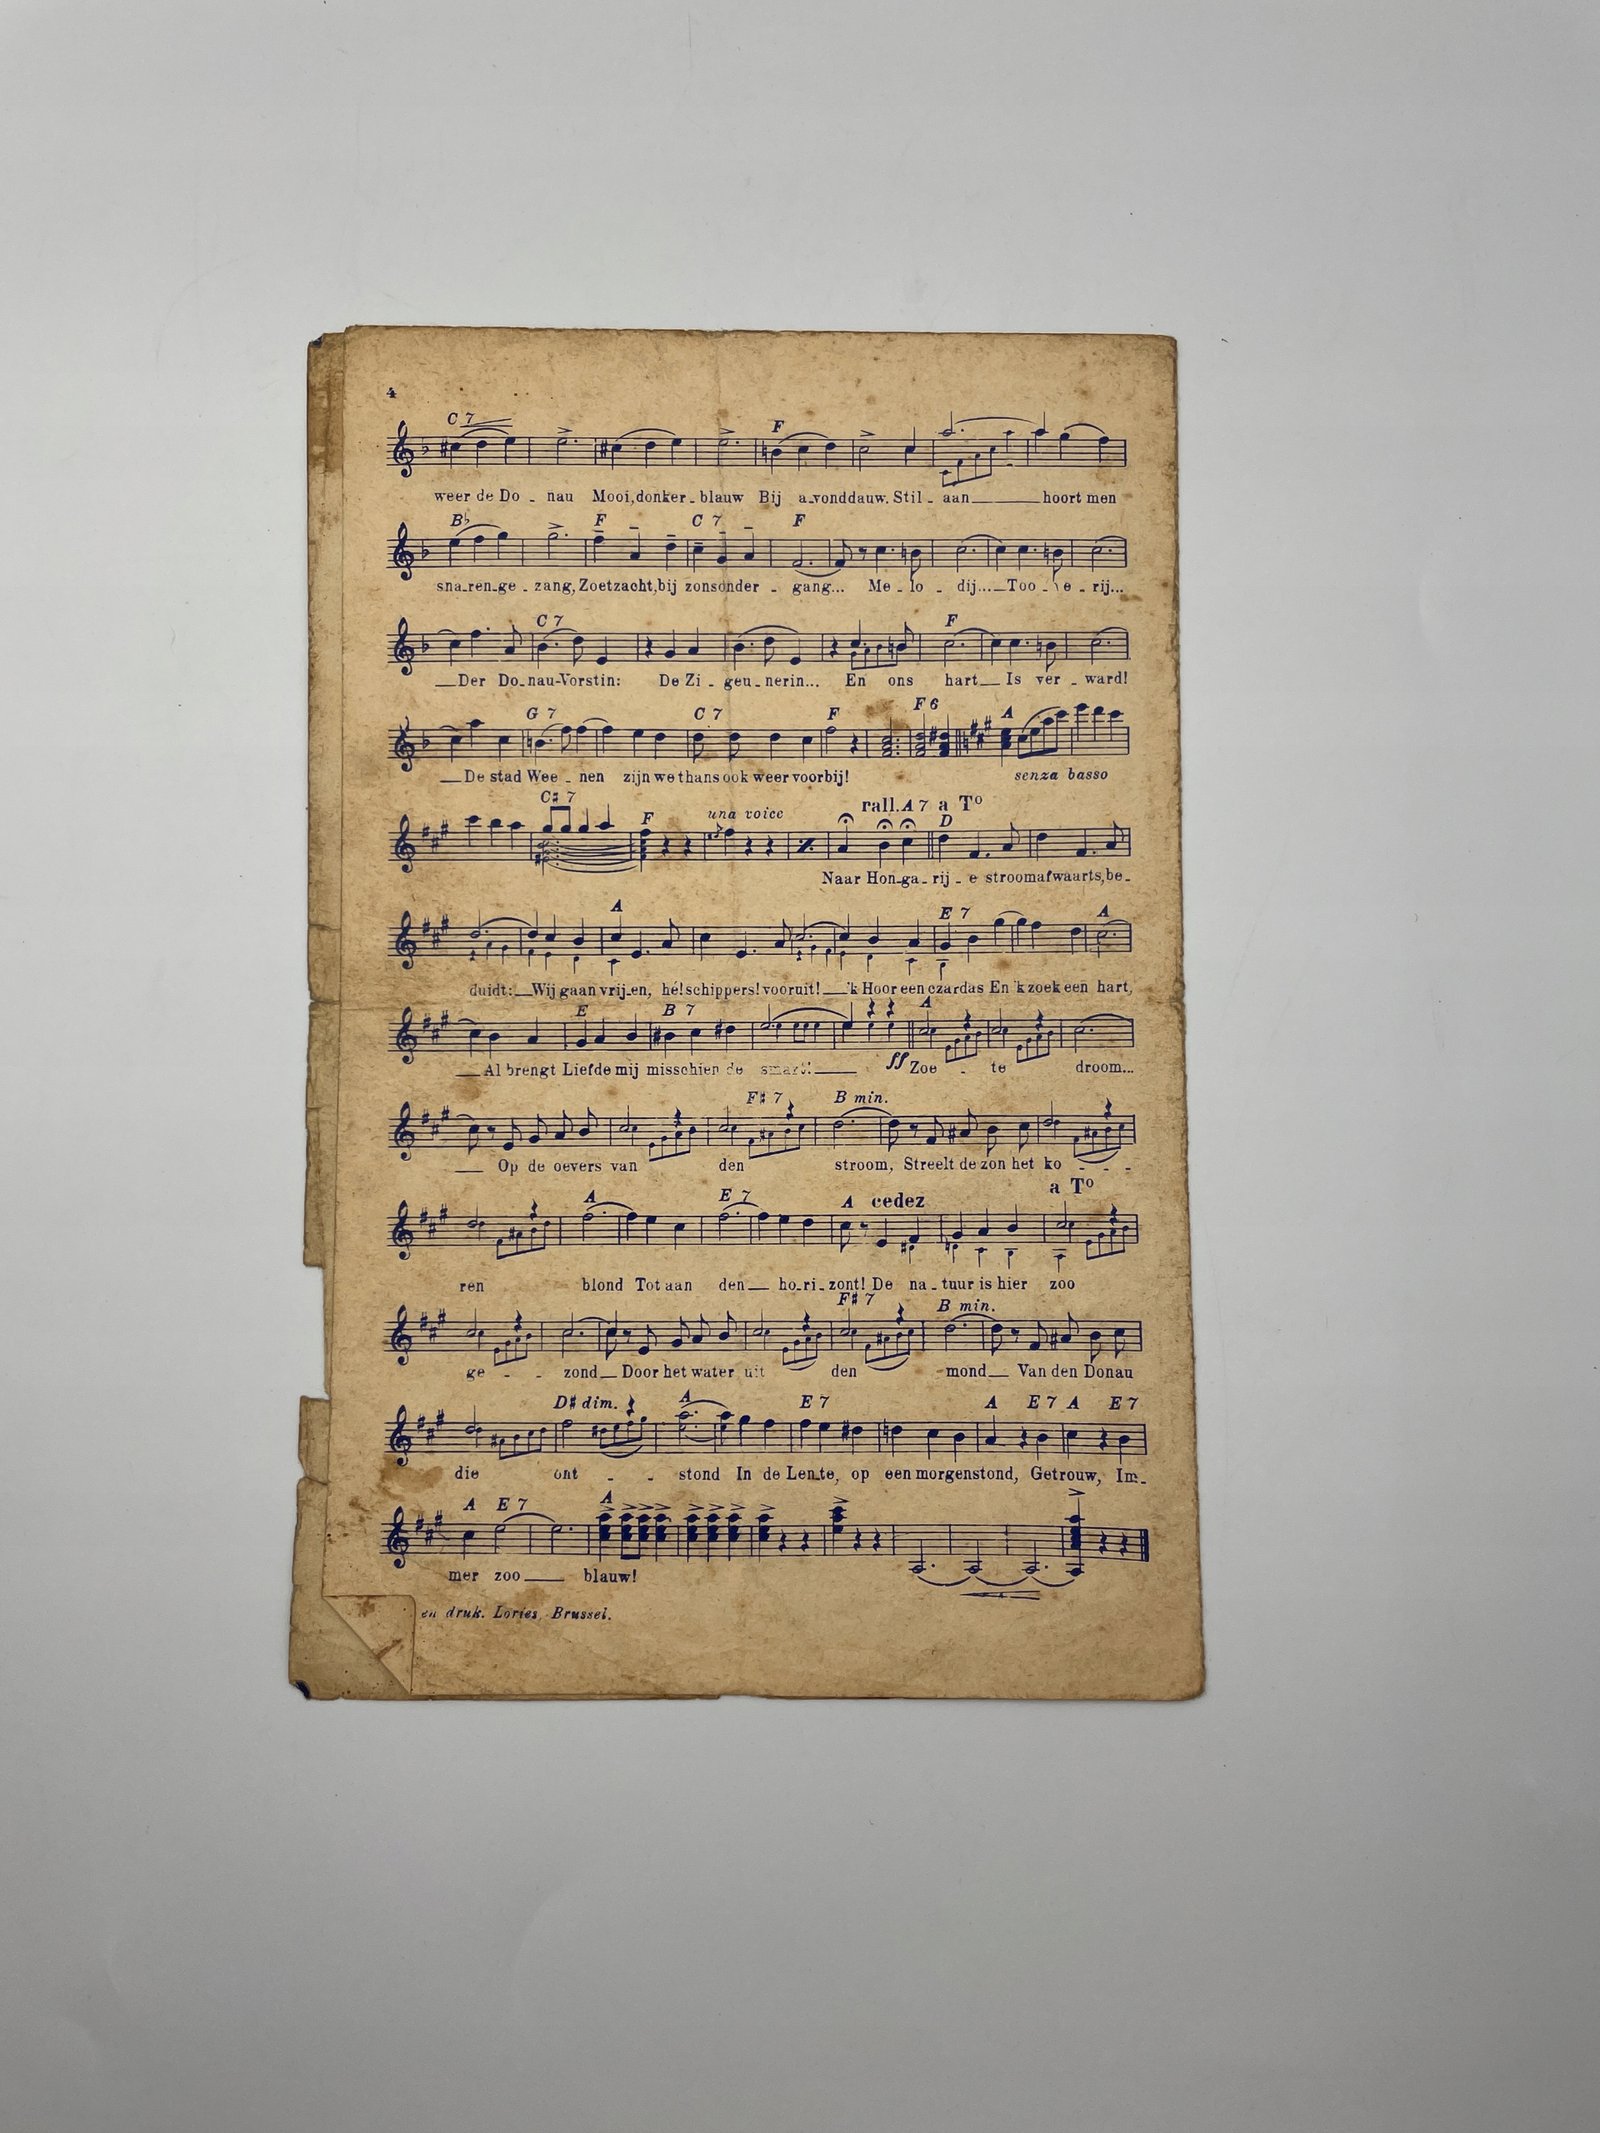 4
C 7 F
weer de Do - nau Mooi, donker - blauw Bij a - vonddauw. Stil - aan hoort men
B♭ F C 7 F
sna - ren - ge - zang, Zoetzacht, bij zonsonder - gang... Me - lo - dij... Too - rij...
C 7 F
Der Do - nau-Vorstin: De Zi - geu - nerin... En ons hart Is ver - ward!
G 7 C 7 F F 6 A
De stad Wee - nen zijn we thans ook weer voorbij! senza basso
C♯ 7 F una voice rall. A 7 a Tº D
Naar Hon - ga - rij - e stroomafwaarts, be -
A E 7 A
duidt: Wij gaan vrij - en, hé! schippers! vooruit! 'k Hoor een czardas En 'k zoek een hart,
E B 7 A
Al brengt Liefde mij misschien de ff Zoe - te droom...
F♯ 7 B min.
Op de oevers van den stroom, Streelt de zon het ko - - -
A E 7 A cedez a Tº
ren blond Tot aan den ho - ri - zont! De na - tuur is hier zoo
F♯ 7 B min.
ge - - zond Door het water uit den mond Van den Donau
D♯ dim. A E 7 A E 7 A E 7
die ont - - stond In de Len - te, op een morgenstond, Getrouw, Im -
A E 7 A
mer zoo blauw!
en druk. Lories, Brussel.